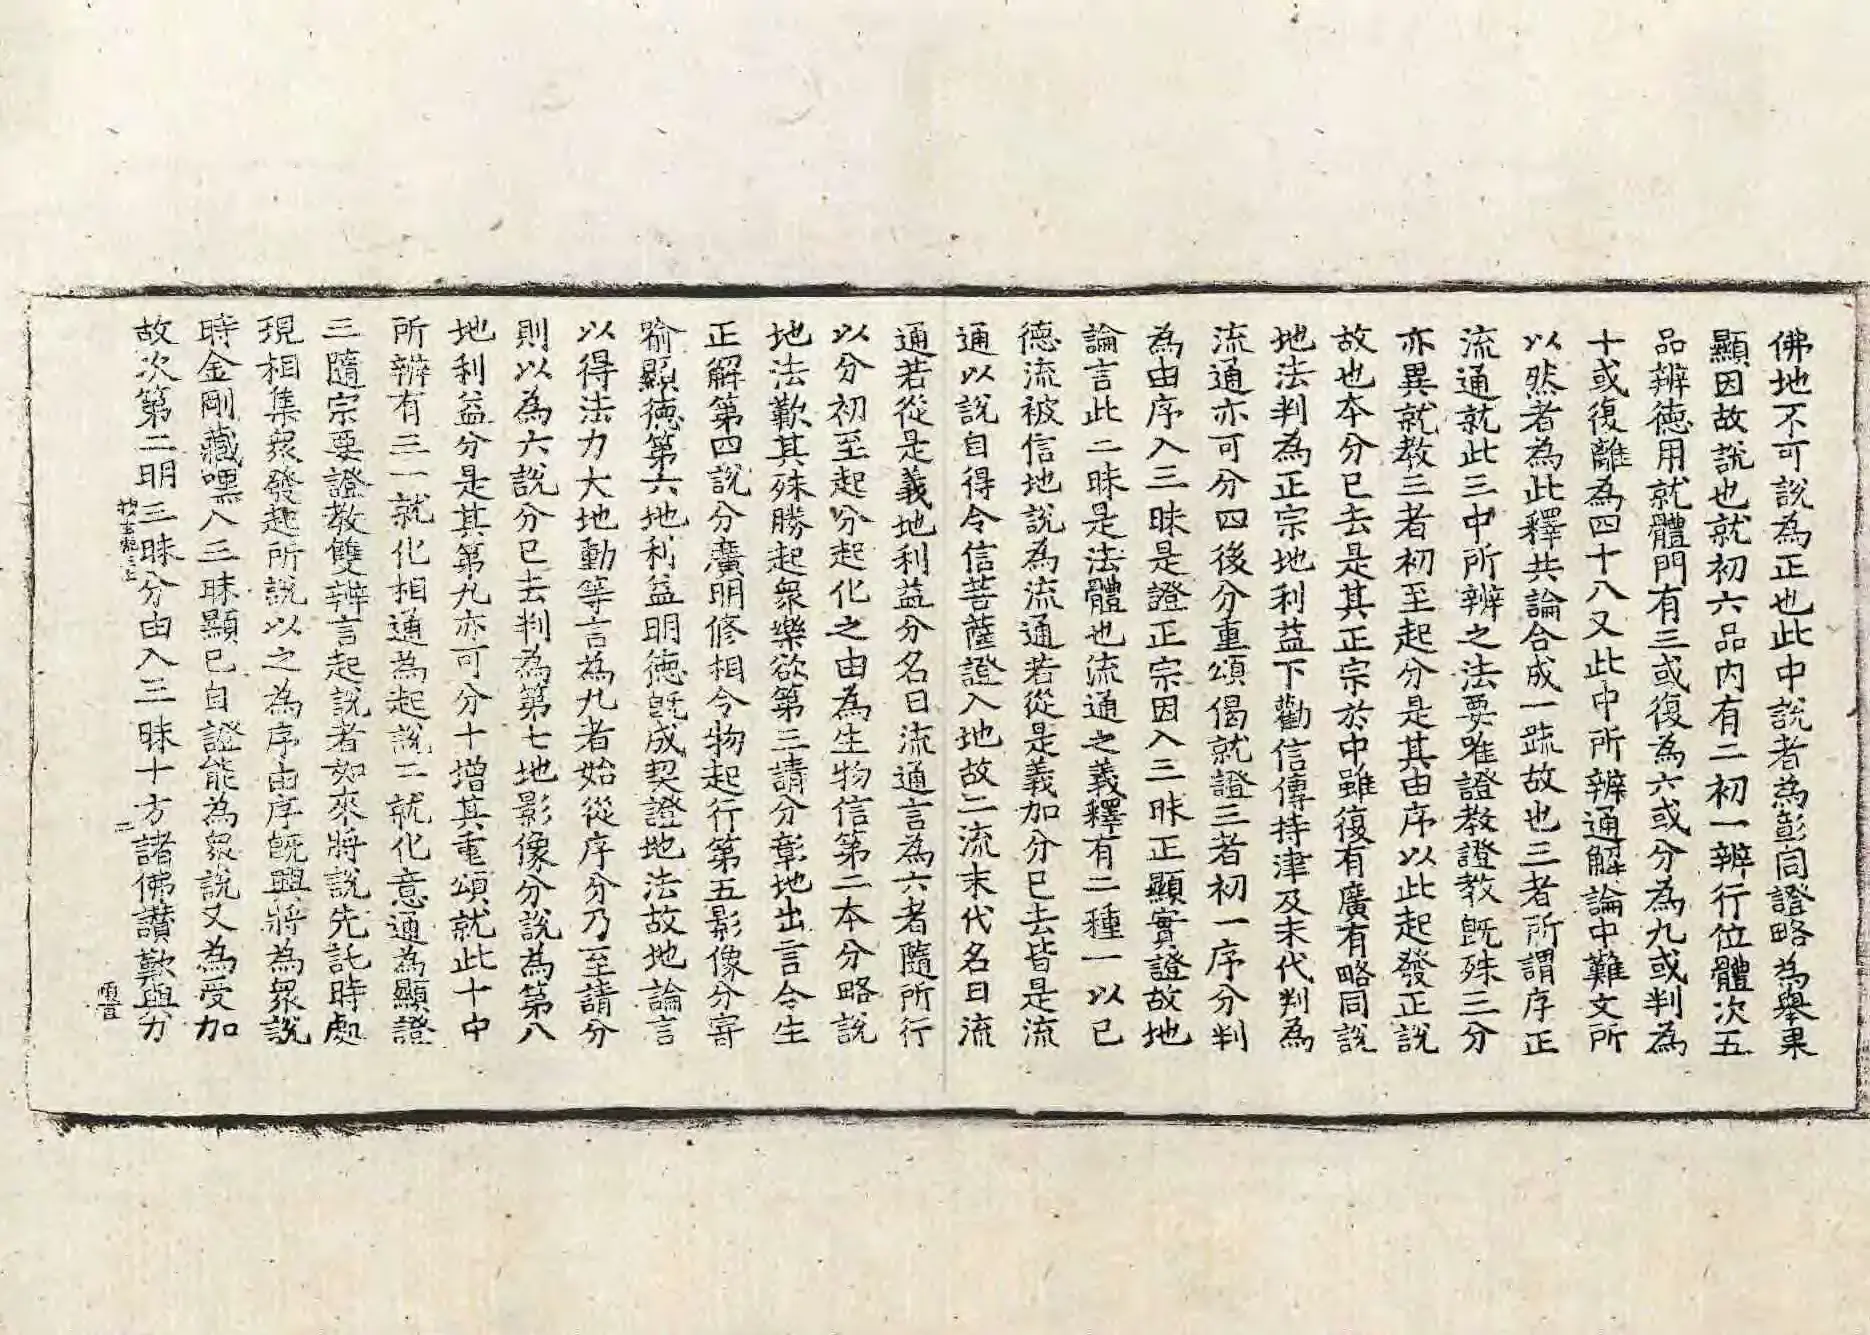 佛地不可說為正也此中說者為彰同證略為舉果
顯因故說也就初六品內有二初一辨行位體次五
品辨德用就體門有三或復為六或分為九或判為
十或復離為四十八又此中所辨通解論中難文所
以然者為此釋共論合成一䟽故也三者所謂序正
流通就此三中所辨之法要唯證教證教既殊三分
亦異就教三者初至起分是其由序以此起發正說
故也本分已去是其正宗於中雖復有廣有略同說
地法判為正宗地利益下勸信傳持津及末代判為
流通亦可分四後分重頌偈就證三者初一序分判
為由序入三昧是證正宗因入三昧正顯實證故地
論言此二昧是法體也流通之義釋有二種一以已
德流被信地說為流通若從是義加分已去皆是流
通以說自得令信菩薩證入地故二流末代名曰流
通若從是義地利益分名曰流通言為六者隨所行
以分初至起分起化之由為生物信第二本分略說
地法歎其殊勝起眾樂欲第三請分彰地出言令生
正解第四說分廣明修相令物起行第五影像分寄
喻顯德第六地利益明德既成契證地法故地論言
以得法力大地動等言為九者始從序分乃至請分
則以為六說分已去判為第七地影像分說為第八
地利益分是其第九亦可分十增其重頌就此十中
所辨有三一就化相通為起說二就化意通為顯證
三隨宗要證教雙辨言起說者如來將說先託時處
現相集眾發起所說以之為序由序既興將為眾說
時金剛藏嘿入三昧顯已自證能為眾說又為受加
故次第二明三昧分由入三昧十方諸佛讚歎與力
二